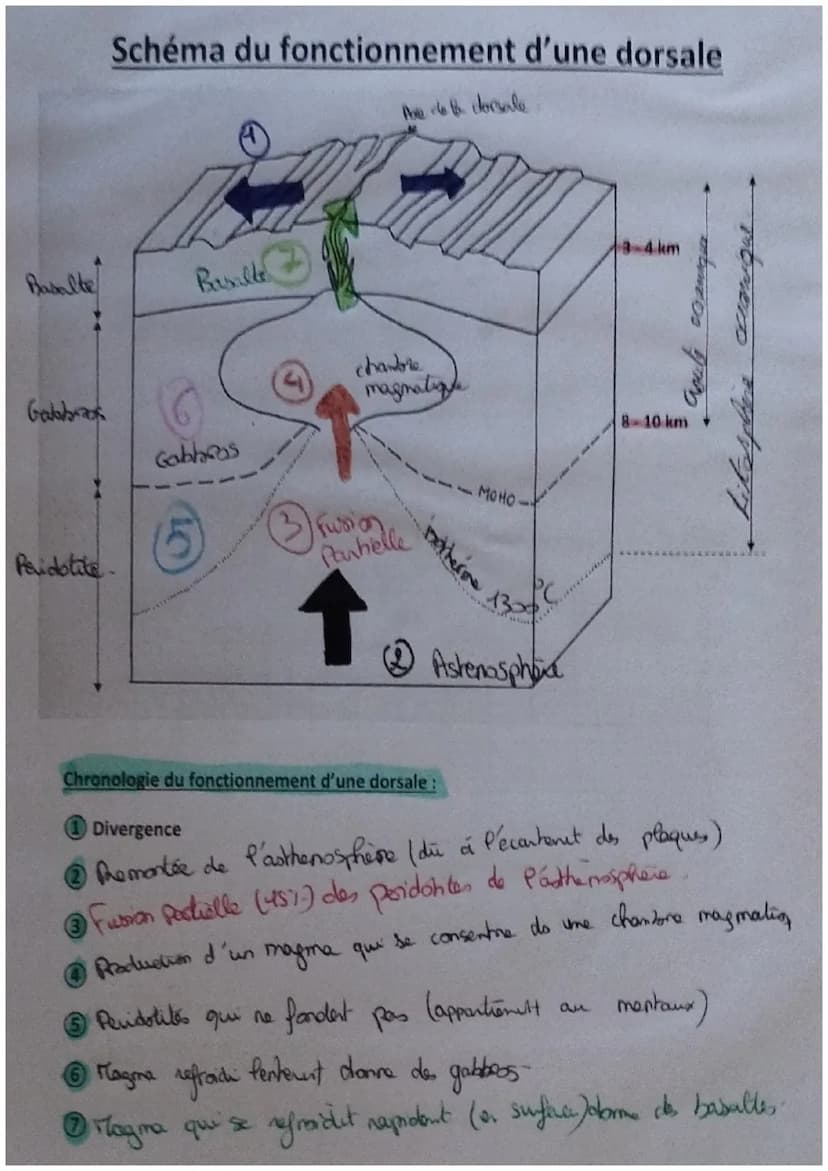 Schéma du fonctionnement d'une dorsale
Axe de la dorsale
1
3-4 km
Basalte
Basalte 7
croute océanique
Lithosphère océanique
4 chambre
magmatique
6
Gabbros
8-10 km
Gabbros
MOHO
5
3 Fusion
Partielle
isotherme 1300°C
Peridotite
2 Astenosphère
Chronologie du fonctionnement d'une dorsale :
1 Divergence
2 Remontée de l'asthenosphère (dû à l'écartement des plaques)
3 Fusion partielle des peridotites de l'asthenosphère.
4 Production d'un magma qui se consentre ds une chambre magmatiq
5 Peridotites qui ne fondent pas (appartiennent au mantaux)
6 Magma refroidi lentement donne des gabbros
7 Magma qui se refroidit rapidement (en surface) donne des basaltes.